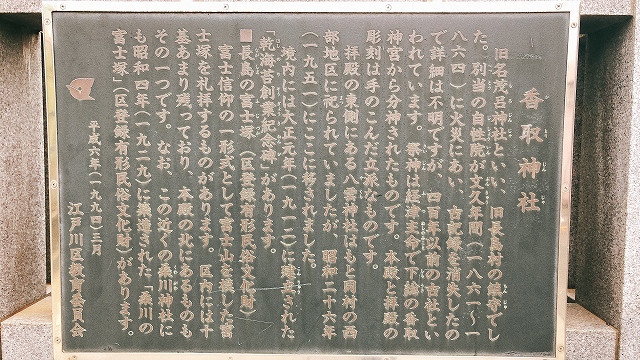 香取神社
旧名茂呂神社といい、旧長島村の鎮守でし
た。別当の自性院が文久年間(一八六一〜一
八六四)に火災にあい、古記録を消失したの
で詳細は不明ですが、四百年以前の古社とい
われています。祭神は経津主命で下総の香取
神宮から分神されたものです。本殿と拝殿の
彫刻は手のこんだ立派なものです。
拝殿の東側にある八雲神社はもと同村の西
部地区に祀られていましたが、昭和二十六年
(一九五一)にここに移されました。
境内には大正元年(一九一二)に建立された
「乾海苔創業記念碑」があります。
■長島の富士塚(区登録有形民俗文化財)
富士信仰の一形式として富士山を模した富
士塚を礼拝するものがあります。区内には十
基あまり残っており、本殿の北にあるものも
その一つです。なお、この近くの桑川神社に
も昭和四年(一九二九)に築造された「桑川の
富士塚」(区登録有形民俗文化財)があります。
平成六年(一九九四)三月
江戸川区教育委員会